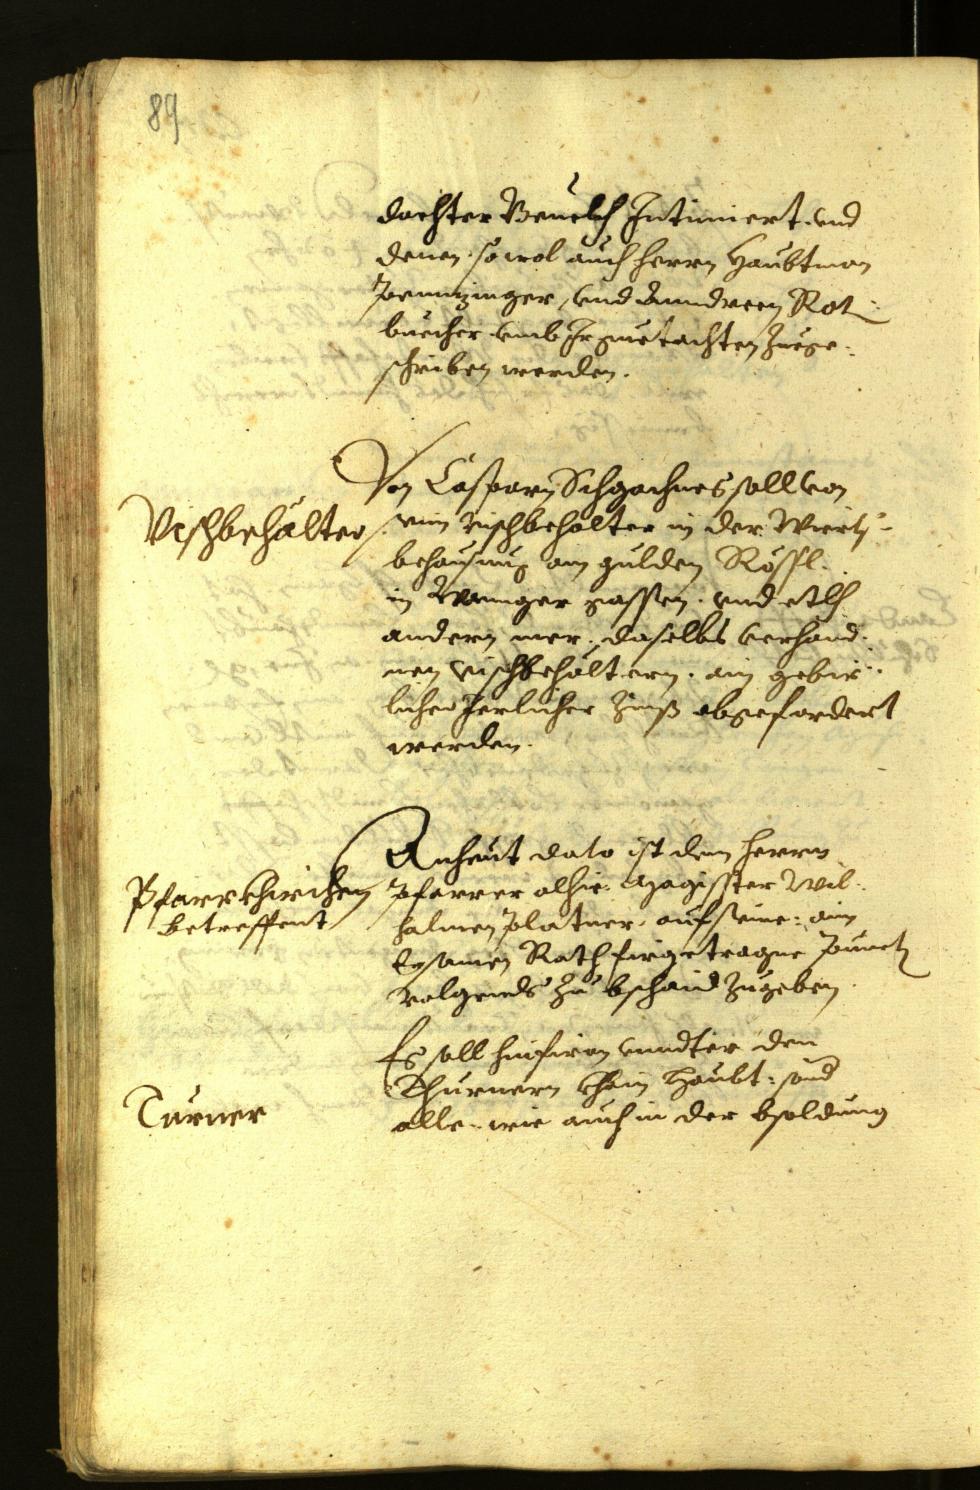 89
dachter Beuelch Intimiert. vnd
denen. so wol auch herrn Haubtman
Penuzinger, vnd Anndreen Rot-
buecher vmb Ir guetachten Zuege-
schriben werden.
Vischbehalter
Von Casparn Schgachnes soll von
ainn vischbehalter in der Wierts-
behausung am gulden Rössl.
in Wannger gassen. vnd etlich
andern mer, daselbs verhand-
nen vischbehaltern. ain gebir-
licher Jerlicher Zinß abgefordert
werden.
Pfarrkhirchen
betreffent
Anheut dato ist dem herrn
Pfarrer alhie. Magister Wil-
halmen Platner, auf seine: ain
Ersamen Rath firgetragne Punct
volgends Zu bschaid Zugeben.
Turner
Es soll hinfiron vnndter den
Thurnern khain Haubt: sond
alle. wie auch in der bsoldung